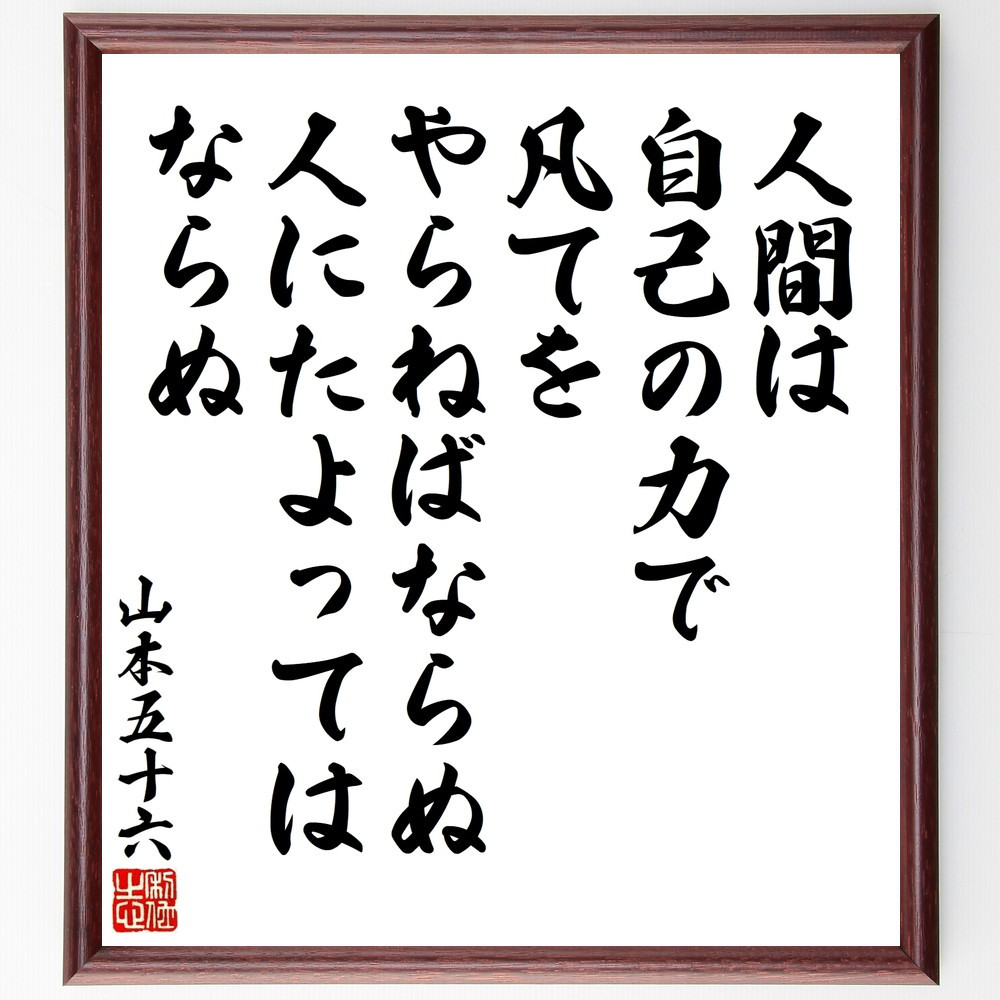 人間は
自己の力で
凡てを
やらねばならぬ
人にたよっては
ならぬ
山本五十六